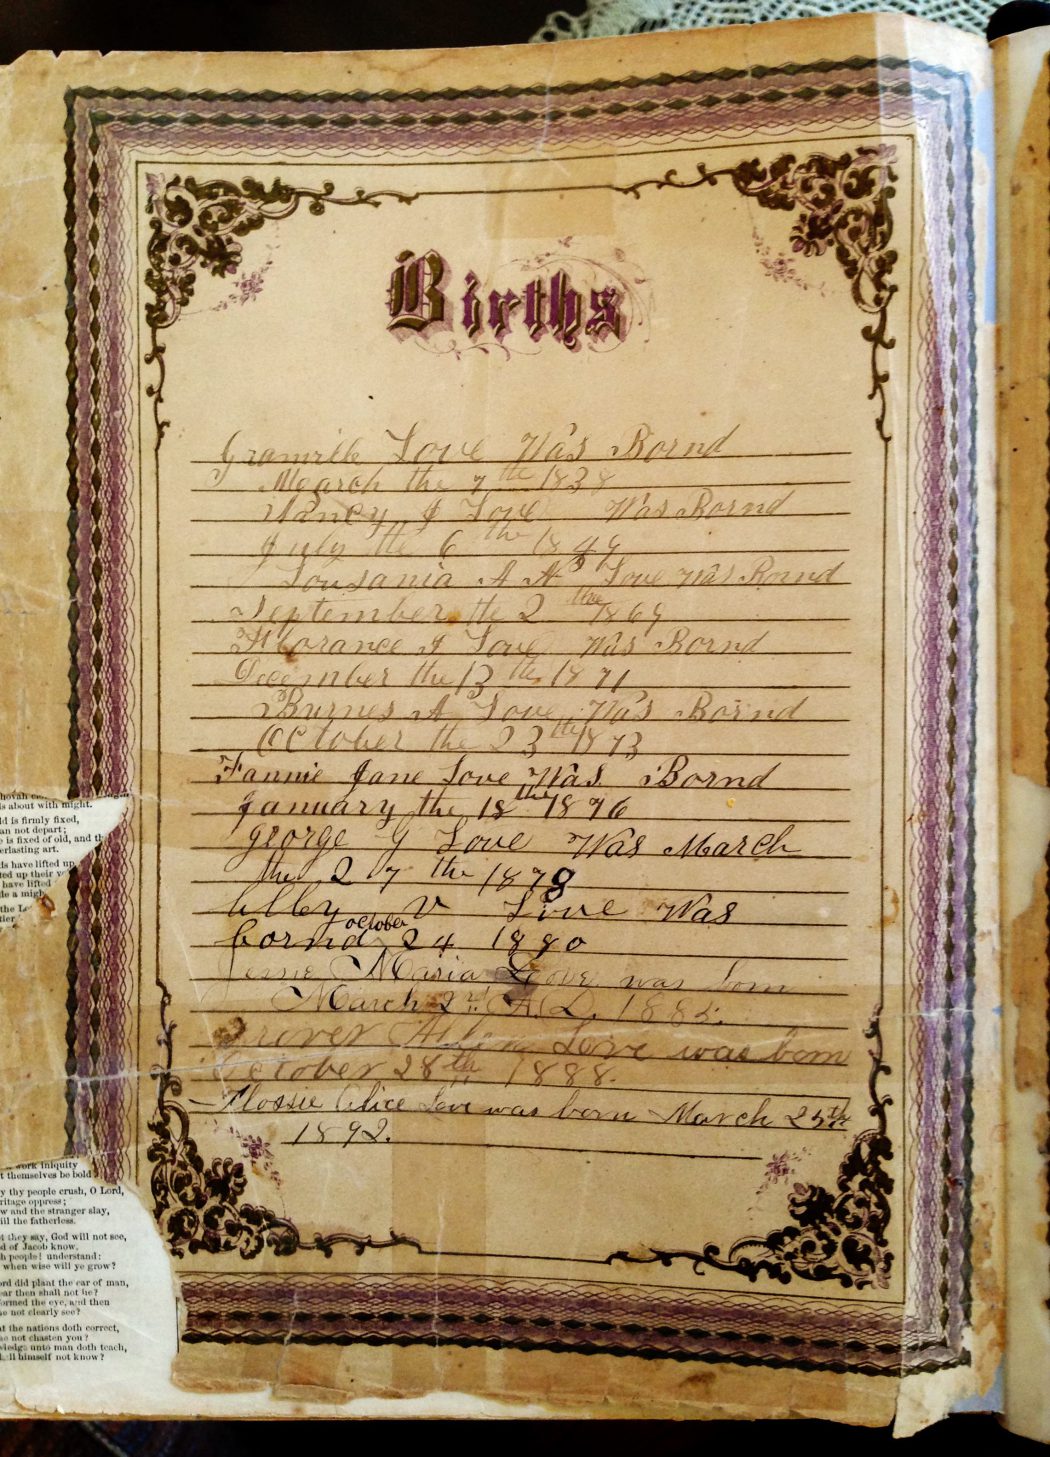 Births
Granville Love Was Bornd
March the 7th 1838
Nancy J Love Was Bornd
July the 6 the 1849
Lousania A A Love Was Bornd
September the 2 the 1869
Florance J Love Was Bornd
December the 13 th 1871
Burnes A Love Was Bornd
October the 23 the 1873
Fannie Jane Love Was Bornd
January the 18 the 1876
George G Love Was March
the 27 the 1878
Love Was
bornd october 24 1880
Maria Love was born
March 2nd A.D. 1885.
Grover Love was born
October 28th 1888.
Flossie Alice Love was born March 25th
1892.
s about with might.
ld is firmly fixed,
an not depart;
e is fixed of old, and th
erlasting art.
ds have lifted up
ted up their
have lifted
de a migh
the L
work iniquity
t themselves be bold
y thy people crush, O Lord,
ritage oppress;
w and the stranger slay,
ill the fatherless.
t they say, God will not see,
d of Jacob know.
h people! understand:
when wise will ye grow?
ord did plant the ear of man,
ear then shall not he?
ormed the eye, and then
e not clearly see?
at the nations doth correct,
e not chasten you?
wledge unto man doth teach,
ll himself not know?